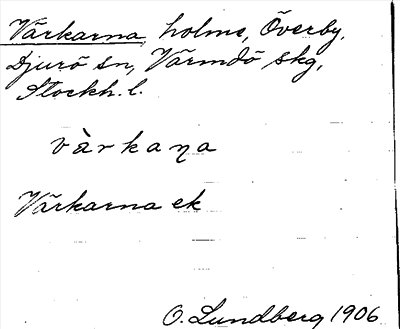 Vårkarna, holme, Överby,
Djurö sn, Värmdö skg,
Stockh. l.
vàrkaƞa
Vårkarna ek
O. Lundberg 1906